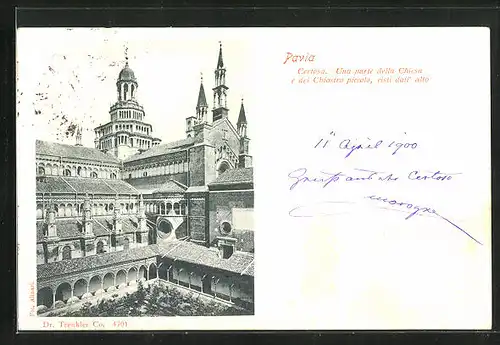 Pavia
Certosa. Una parte della Chiesa
e del Chiostro piccolo, visti dall' alto
11 April 1900
Gruß aus der Certosa
Dr. Trenkler Co. 4701